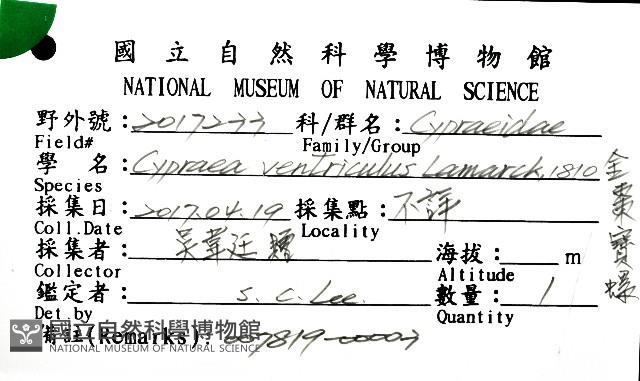 國立自然科學博物館
NATIONAL MUSEUM OF NATURAL SCIENCE
野外號：2017233 科/群名：Cypraeidae
Field# Family/Group
學 名：Cypraea ventriculus Lamarck, 1810
Species
採集日：2017.04.19 採集點：不詳
Coll.Date Locality
採集者：吳韋廷 贈 海拔： m
Collector Altitude
鑑定者：S. C. Lee. 數量：1
Det.by Quantity
備註(Remarks)：007819-00003
金棗寶螺
國立自然科學博物館
NATIONAL MUSEUM OF NATURAL SCIENCE